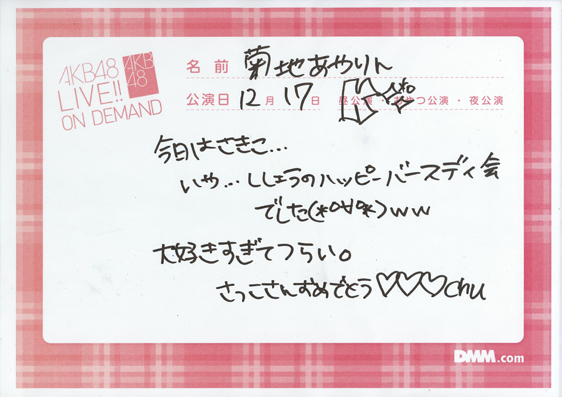 AKB48
LIVE!!
ON DEMAND
AKB
48
名 前 菊地あやりん
公演日 12月 17日 昼公演・おやつ公演・夜公演
今日はさきこ...
いや...ししょうのハッピーバースディ会
でした(*º∀º*)ww
大好きすぎてつらい。
さっこさんおめでとう♡♡♡chu
DMM.com